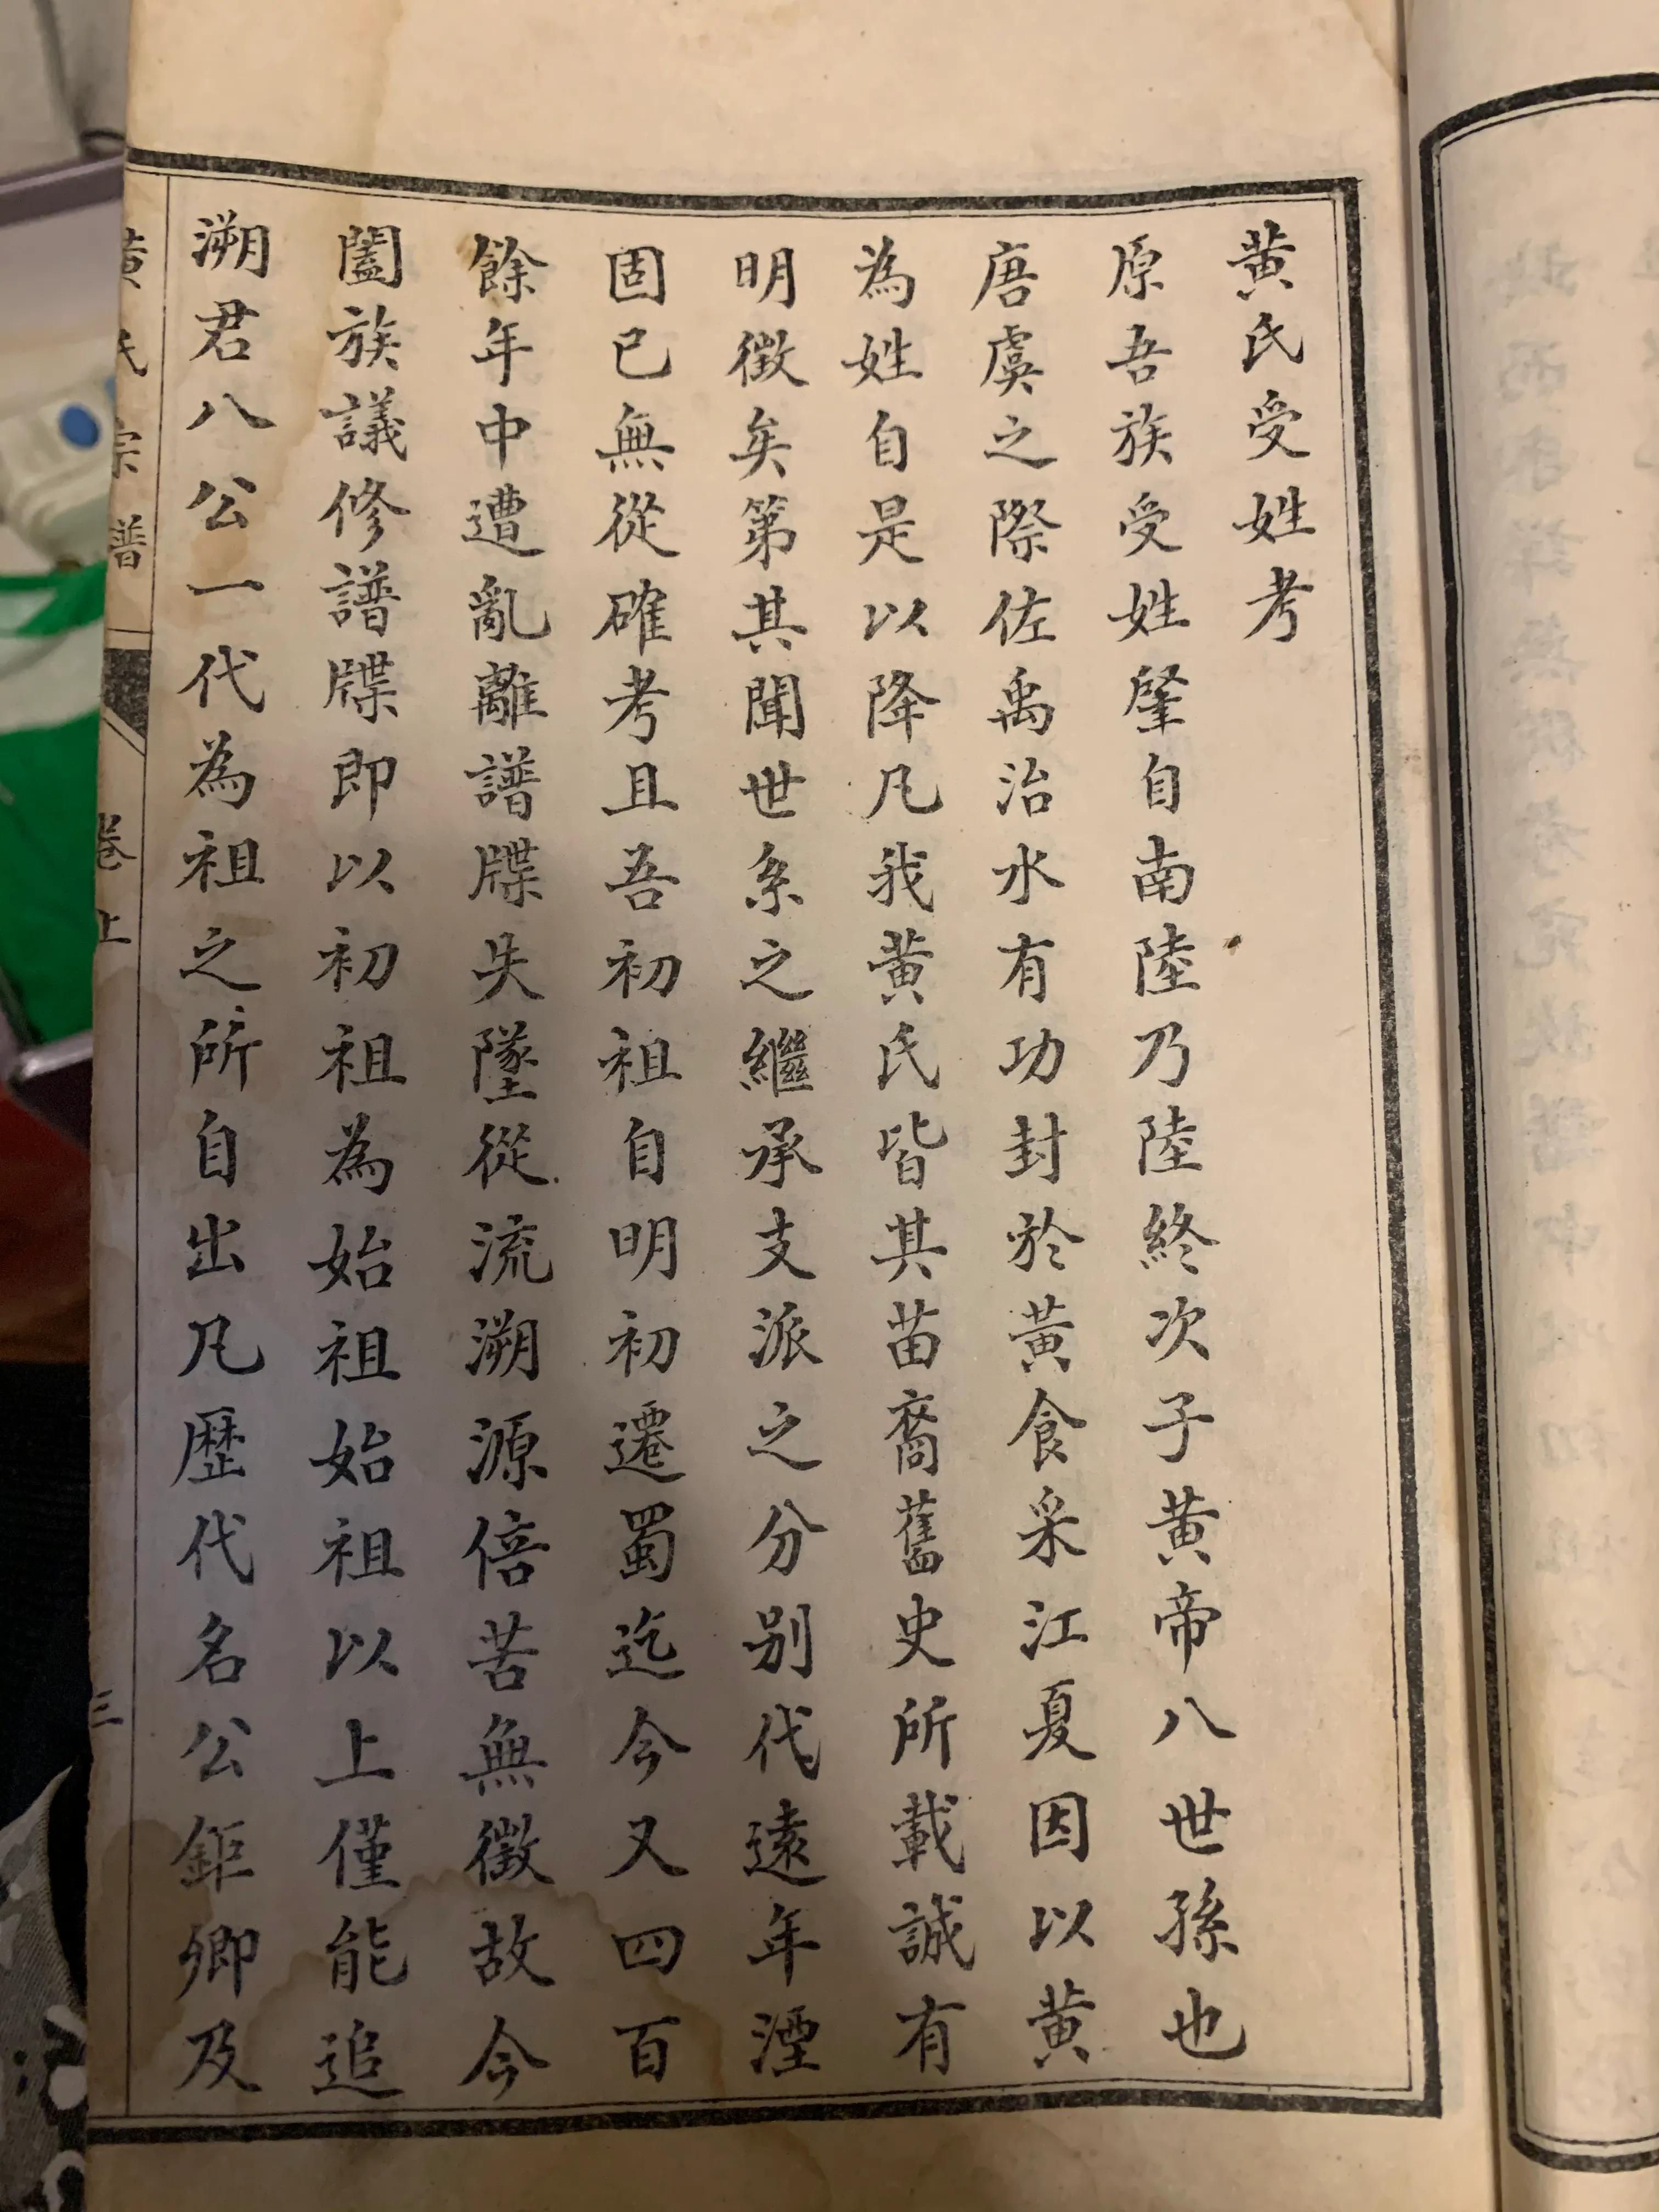 黃氏受姓考
原吾族受姓肇自南陸乃陸終次子黃帝八世孫也
唐虞之際佐禹治水有功封於黃食采江夏因以黃
為姓自是以降凡我黃氏皆其苗裔舊史所載誠有
明徵矣第其聞世系之繼承支派之分別代遠年湮
固已無從確考且吾初祖自明初遷蜀迄今又四百
餘年中遭亂離譜牒失墜從流溯源倍苦無徵故今
闔族議修譜牒即以初祖為始祖始祖以上僅能追
溯君八公一代為祖之所自出凡歷代名公鉅卿及
黃氏宗譜 卷上 三